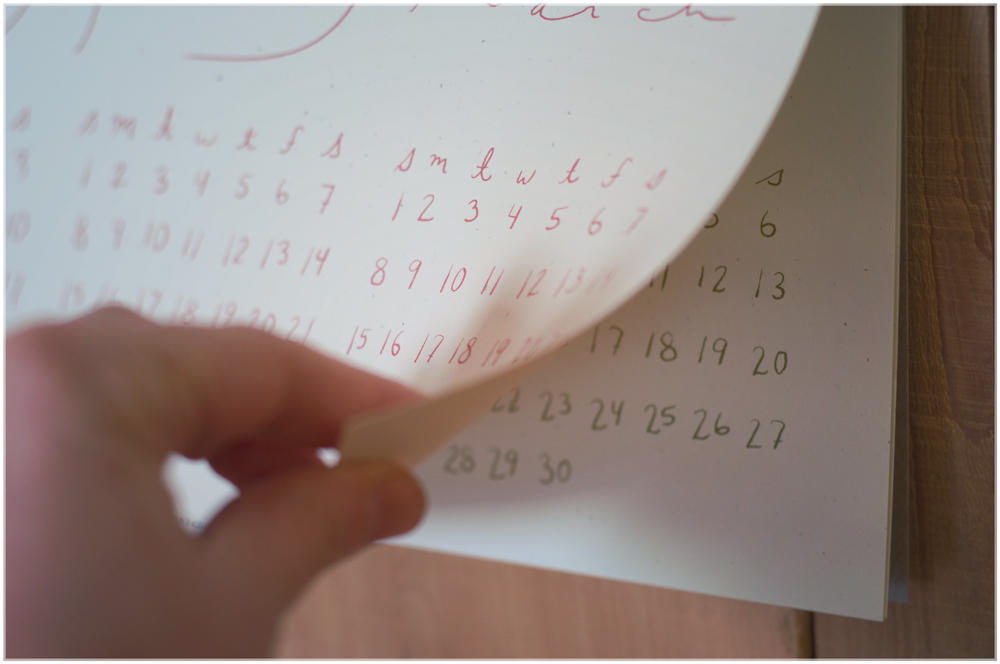 arch
s s m t w t f s s m t w t f s s
3 1 2 3 4 5 6 7 1 2 3 4 5 6 7 5 6
10 8 9 10 11 12 13 14 8 9 10 11 12 13 14 11 12 13
17 15 16 17 18 19 20 21 15 16 17 18 19 20 17 18 19 20
22 23 24 25 26 27
28 29 30